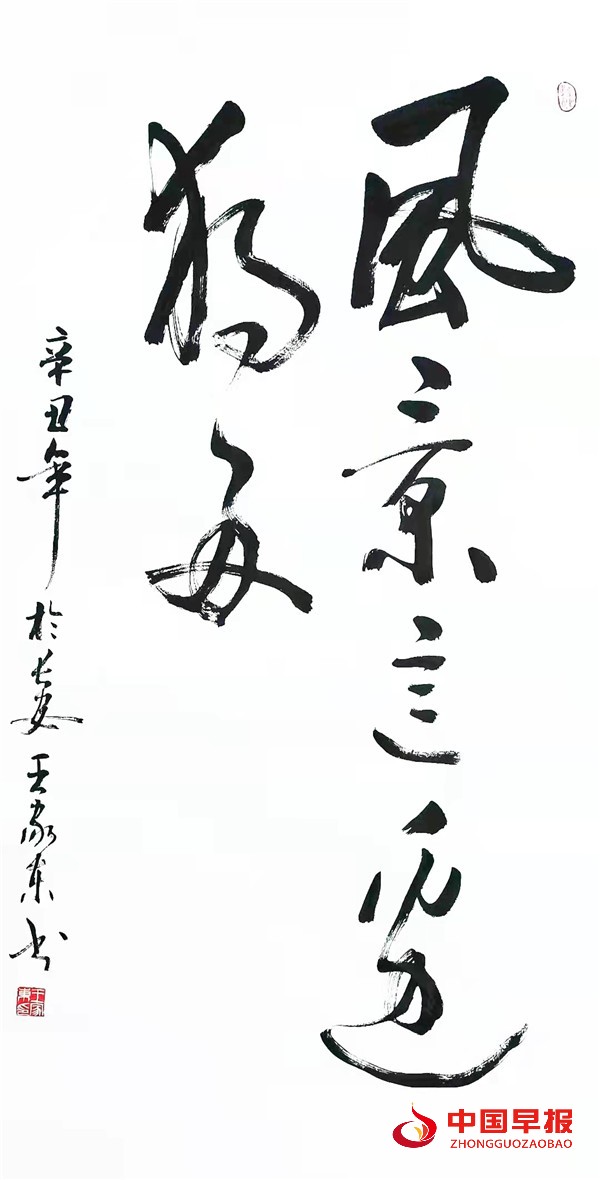 風景這邊
獨好
辛丑年於長安王家東书
中国早报
ZHONGGUOZAOBAO